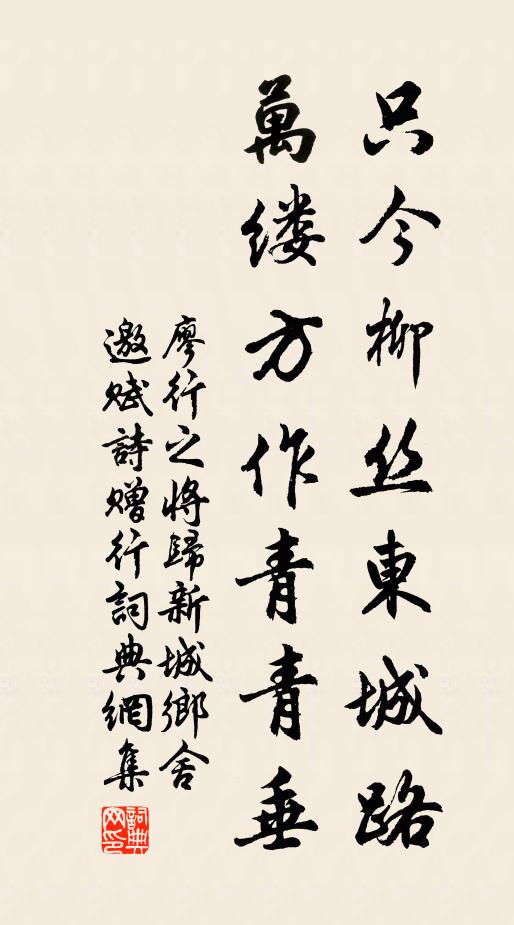 只今柳丝東城路
萬缕方作青青垂
廖行之將歸新城鄉舍
邀赋詩贈行詞典網集
詞典
网印